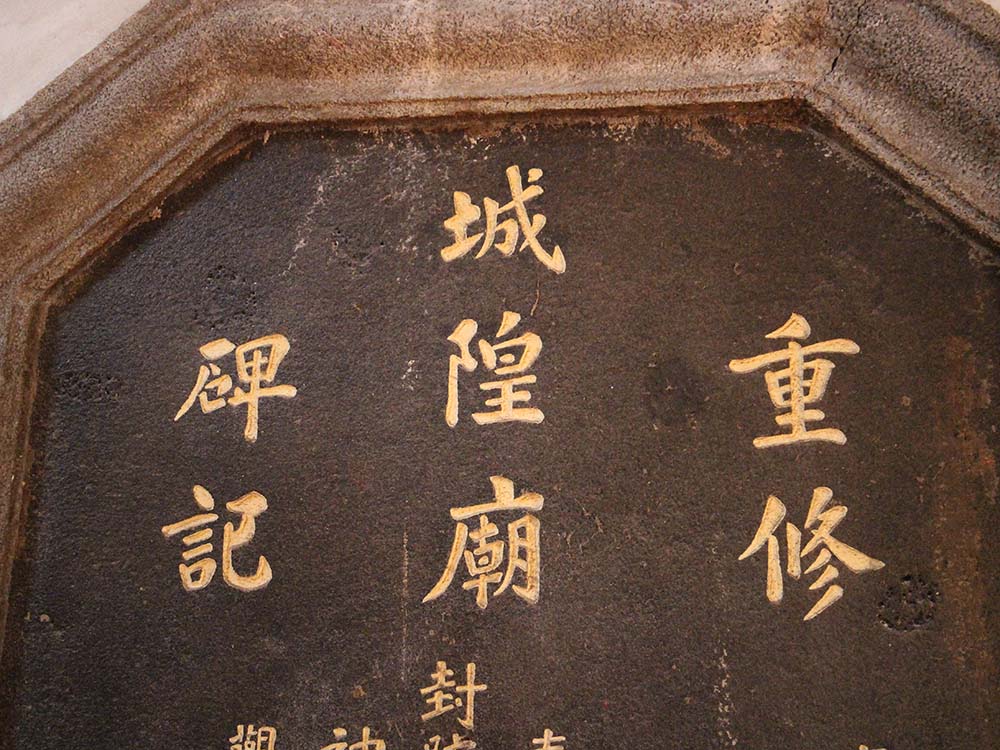 重修
城隍廟
碑記
封